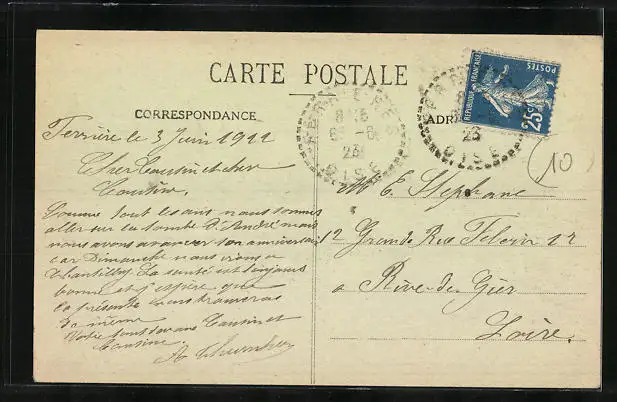 CARTE POSTALE
CORRESPONDANCE
ADR
RÉPUBLIQUE FRANÇAISE
POSTES
25c
8
23
OISE
23
OISE
10
le 3 Juin 19
Cher Cousin et cher
Cousine
Comme tout les ans nous sommes
aller sur la tombe d'André mais
nous avons avancer son anniversaire
car Dimanche nous irons a
Chantilly. La santé est toujours
bonne et j'espère que
la présente vous trouveras
de même
Votre tout dévoué Cousin et
Cousine
M E. Stephane
12 Grande Rue 12
a Rive-de-Gier
Loire.